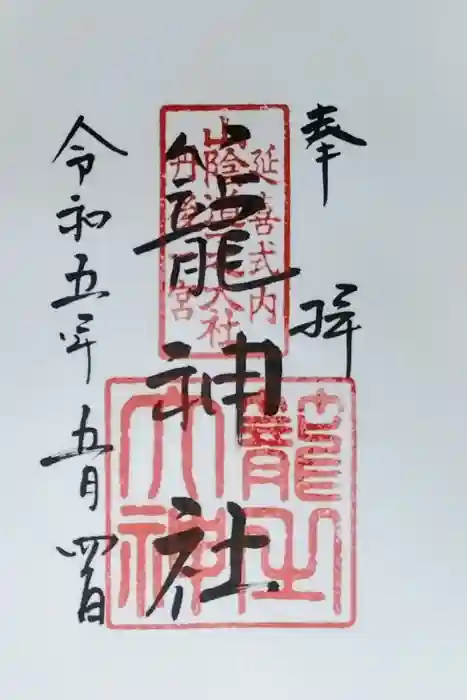 奉拝
延喜式内
山陰道一大社
丹後一宮
籠神社
籠之大神
令和五年五月四日